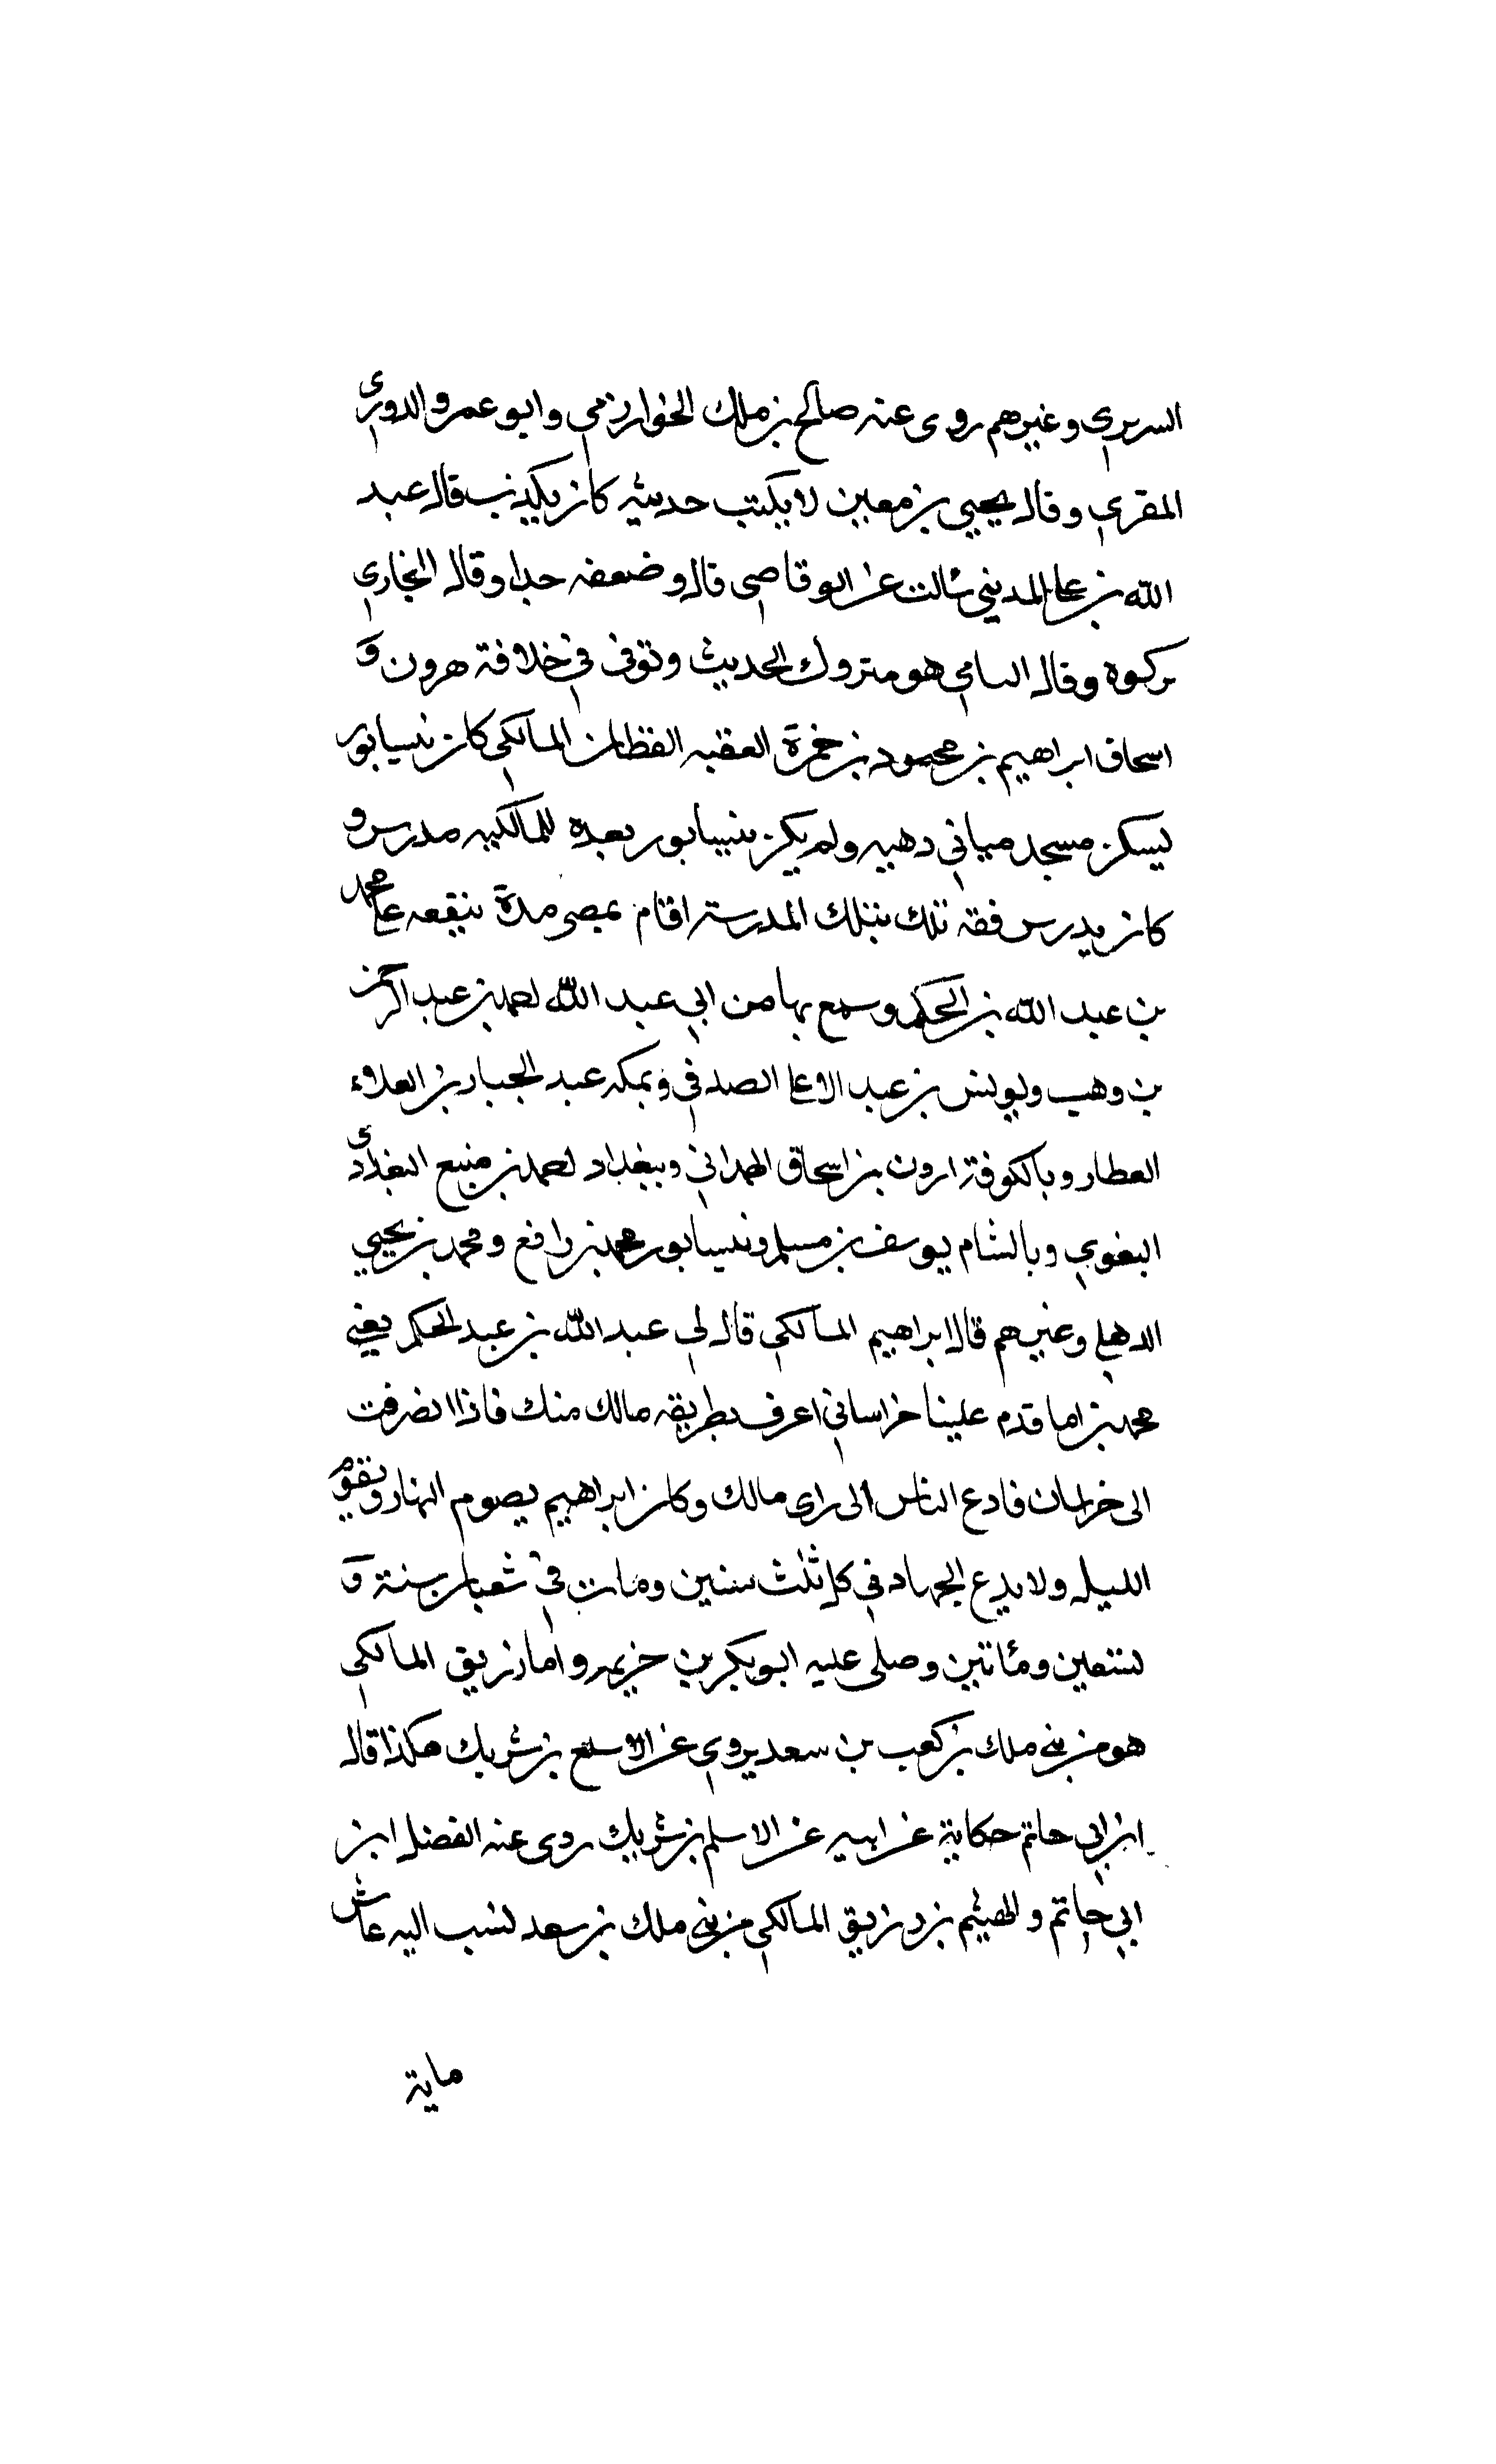 السريري وغيرهم روى عنه صالح بن ملك الخوارزمي وابو عمرو الدوري
المقري وقال يحيي بن معين لا يكتب حديثه كان يكذب قال عبد
الله بن على المديني سالت عن الوقاصى قال وضعفه جدا وقال البخارى
تركوه وقال النسامي هو متروك الحديث وتوفى في خلافة هرون و
اسحاق ابراهيم بن محمود بن حمزة الفقيه القطان المالكي كان نيسابور
يسكن مسجد مياني دهيه ولم يكن بنيسابور بعده للمالكيه مدرس و
كان يدرس فقه تلك بتلك المدرسة اقام بمصر مدة يتفقه على محمد
بن عبد الله بن الحكم وسمع بها من ابي عبد الله احمد بن عبد الرحمن
بن وهب ويونس بن عبد الاعلى الصدفي وبمكه عبد الجبار بن العلاء
العطار وبالكوفة ارون بن اسحاق الهمداني وببغداد احمد بن منيع البغدادى
البغوي وبالشام يوسف بن مسلم ونيسابور محمد بن رافع ومحمد بن يحيي
الدهلي وغيرهم قال ابراهيم المالكي قال لي عبد الله بن عبد الحكم يعني
محمد بن اما قدم علينا خراساني اعرف بطريقه مالك منك فاذا انصرفت
الى خراسان فادع الناس الى راى مالك وكان ابراهيم يصوم النهار ويقوم
الليل ولا يدع الجهاد في كل ثلث سنين ومات في شعبان سنة و
تسعين ومائتين وصلى عليه ابو بكر بن خزيمه واما رزيق المالكي
هو من بني ملك بن كعب بن سعد يروي عن الاسلع بن شريك هكذا قال
ابن ابي حاتم حكاية عن ابيه عن الاسلم بن شريك ردى عنه الفضل ابن
ابي حاتم والهيثم بن رزيق المالكي من بني ملك بن سعد نسب اليه عاش
ماية